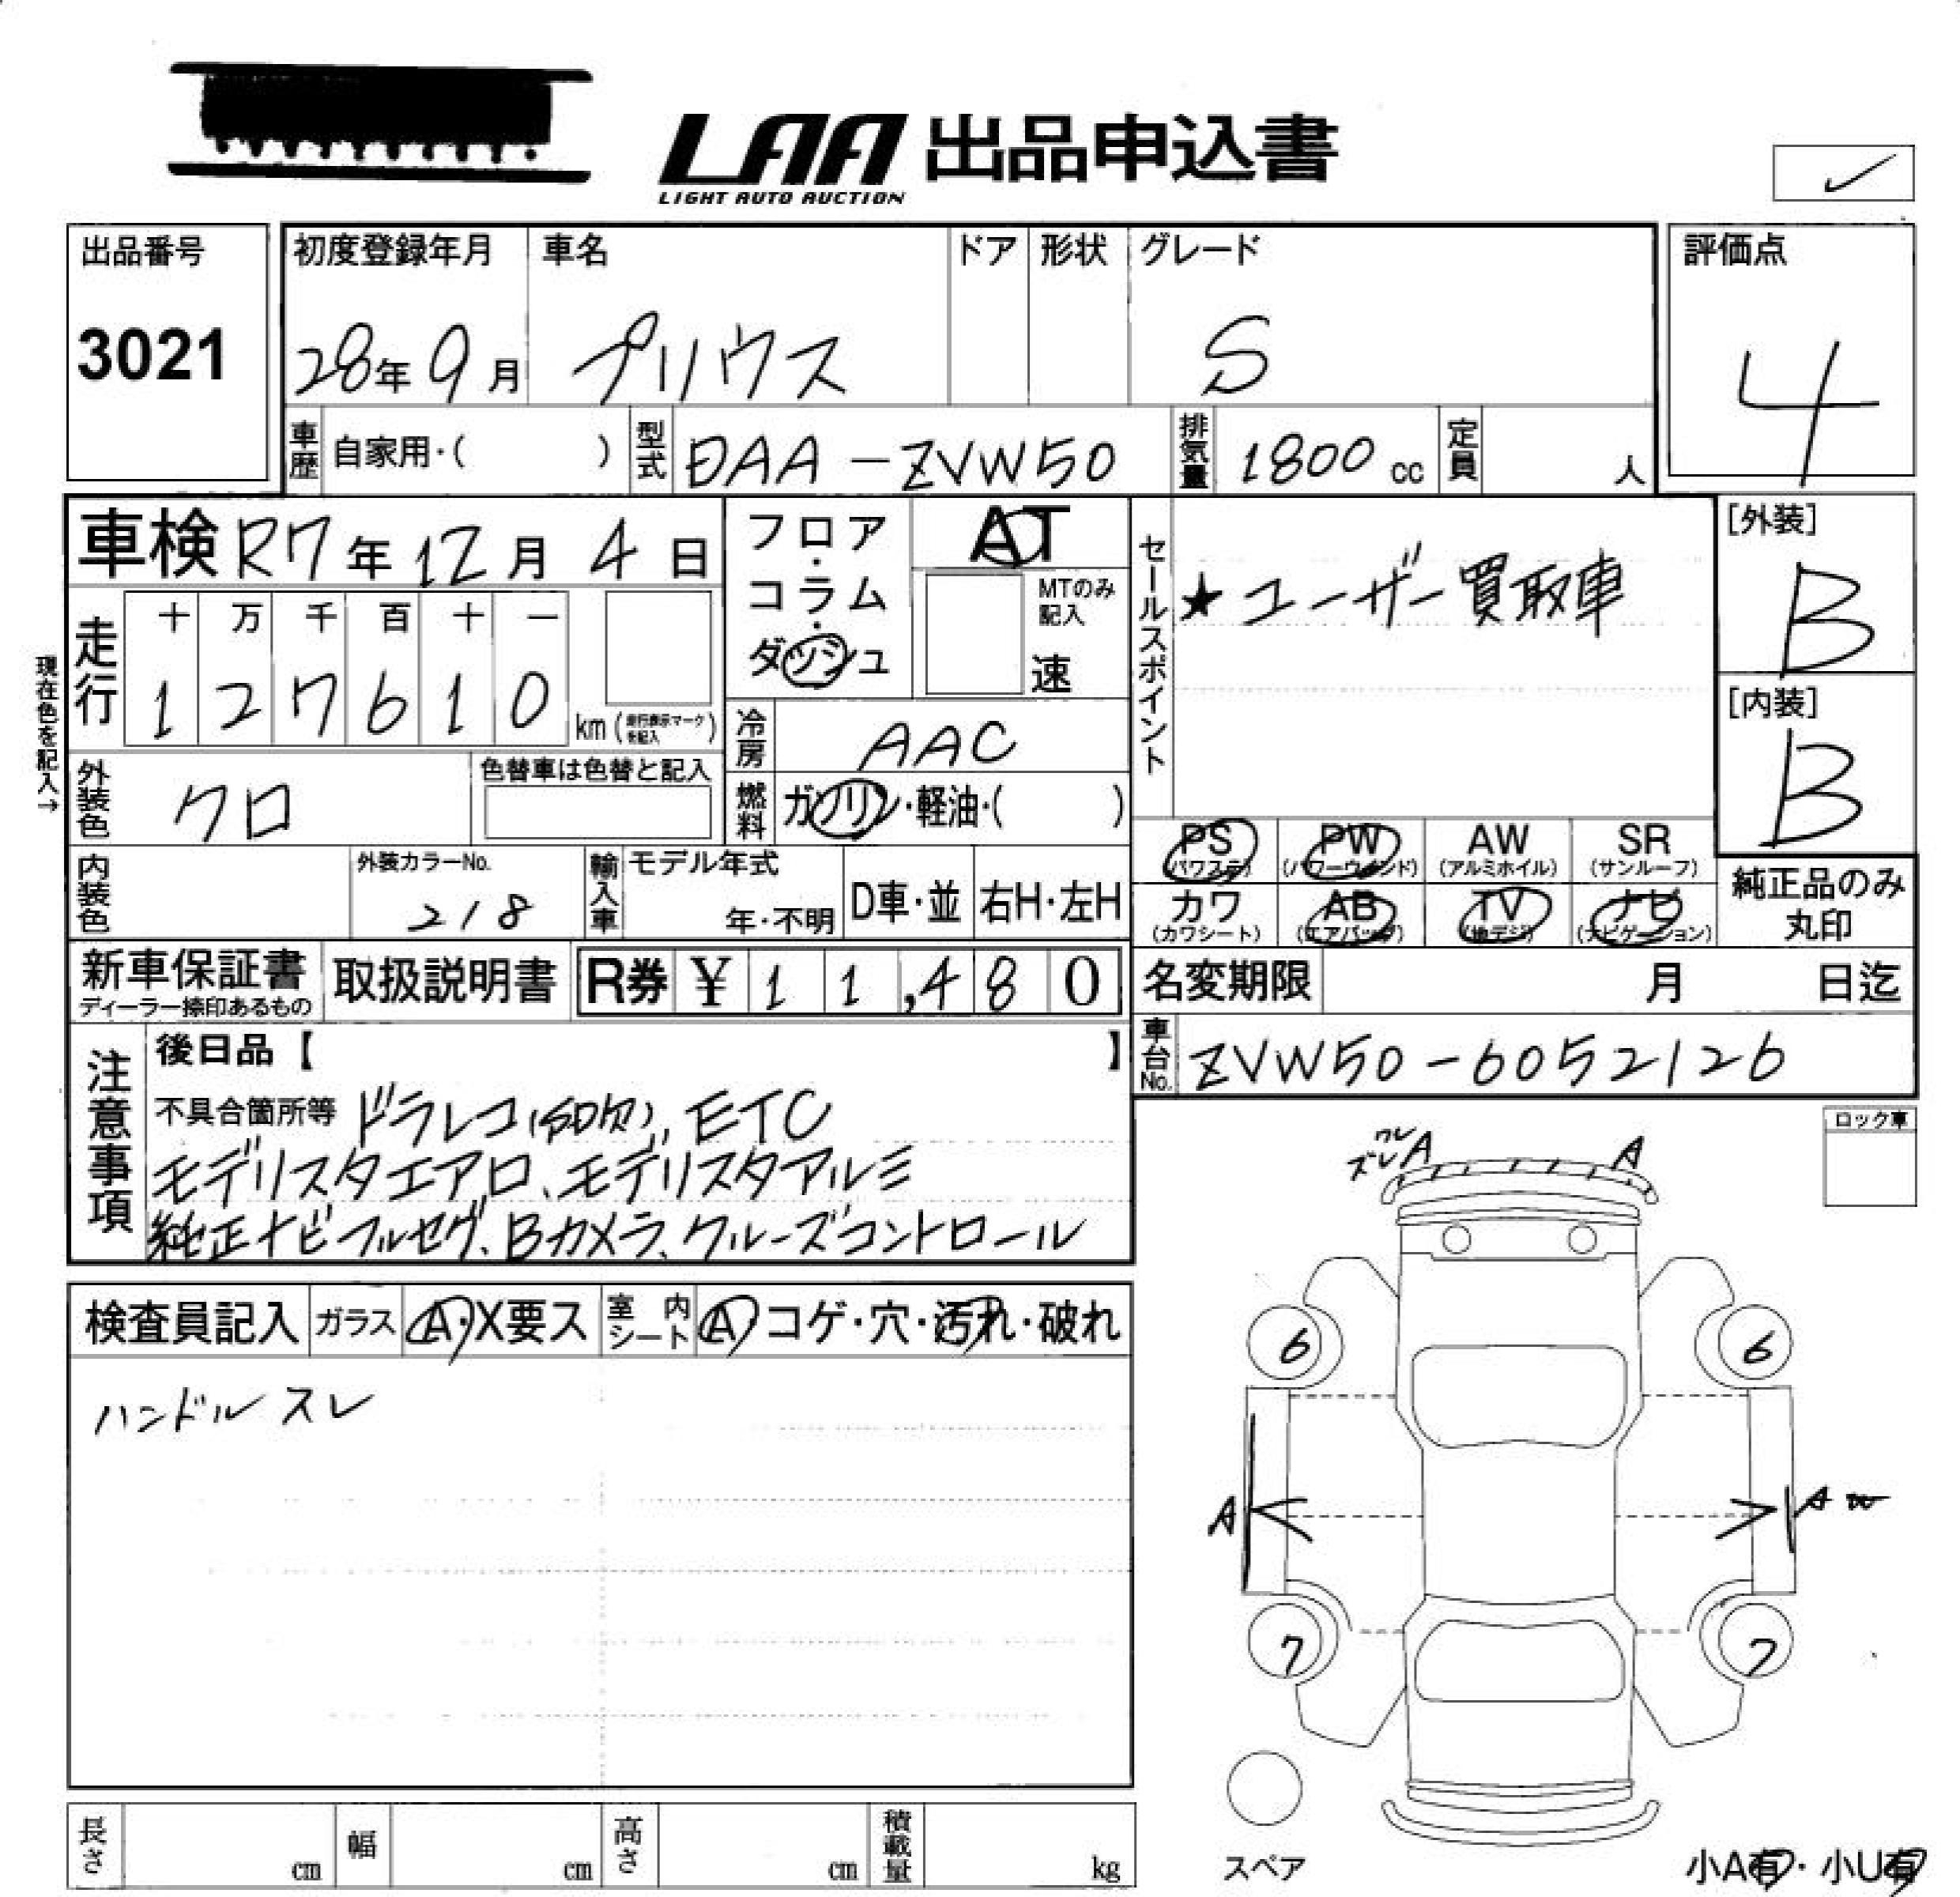 LAA 出品申込書
LIGHT AUTO AUCTION
出品番号
3021
初度登録年月 車名 ドア 形状 グレード
28年 9月 プリウス S
評価点
4
車歴 自家用・( ) 型式 DAA-ZVW50 排気量 1800 cc 定員 人
車検 R7年 12月 4日
フロア・コラム・ダッシュ
AT
MTのみ記入
速
セールスポイント
★ユーザー買取車
[外装]
B
[内装]
B
現在色を記入→
走行 十 万 千 百 十 一
1 2 7 6 1 0 km (走行表示マークを記入)
冷房 AAC
外装色 クロ
色替車は色替と記入
燃料 ガソリン・軽油・( )
内装色
外装カラーNo.
218
輸入車 モデル年式
年・不明 D車・並 右H・左H
PS (パワステ) PW (パワーウインド) AW (アルミホイル) SR (サンルーフ)
カワ (カワシート) AB (エアバッグ) TV (地デジ) ナビ (ナビゲーション)
純正品のみ
丸印
新車保証書
ディーラー捺印あるもの
取扱説明書
R券 ¥ 1 1,4 8 0
名変期限 月 日迄
車台No. ZVW50-6052126
注意事項
後日品【 】
不具合箇所等 ドラレコ(SD欠)、ETC
モデリスタエアロ、モデリスタアルミ
純正ナビフルセグ、Bカメラ、クルーズコントロール
ロック車
ワレ
ズレ A A
検査員記入 ガラス A・X要ス 室内シート A コゲ・穴・汚れ・破れ
ハンドルスレ
6 6
A A
7 7
スペア
長さ cm 幅 cm 高さ cm 積載量 kg
小A有・小U有